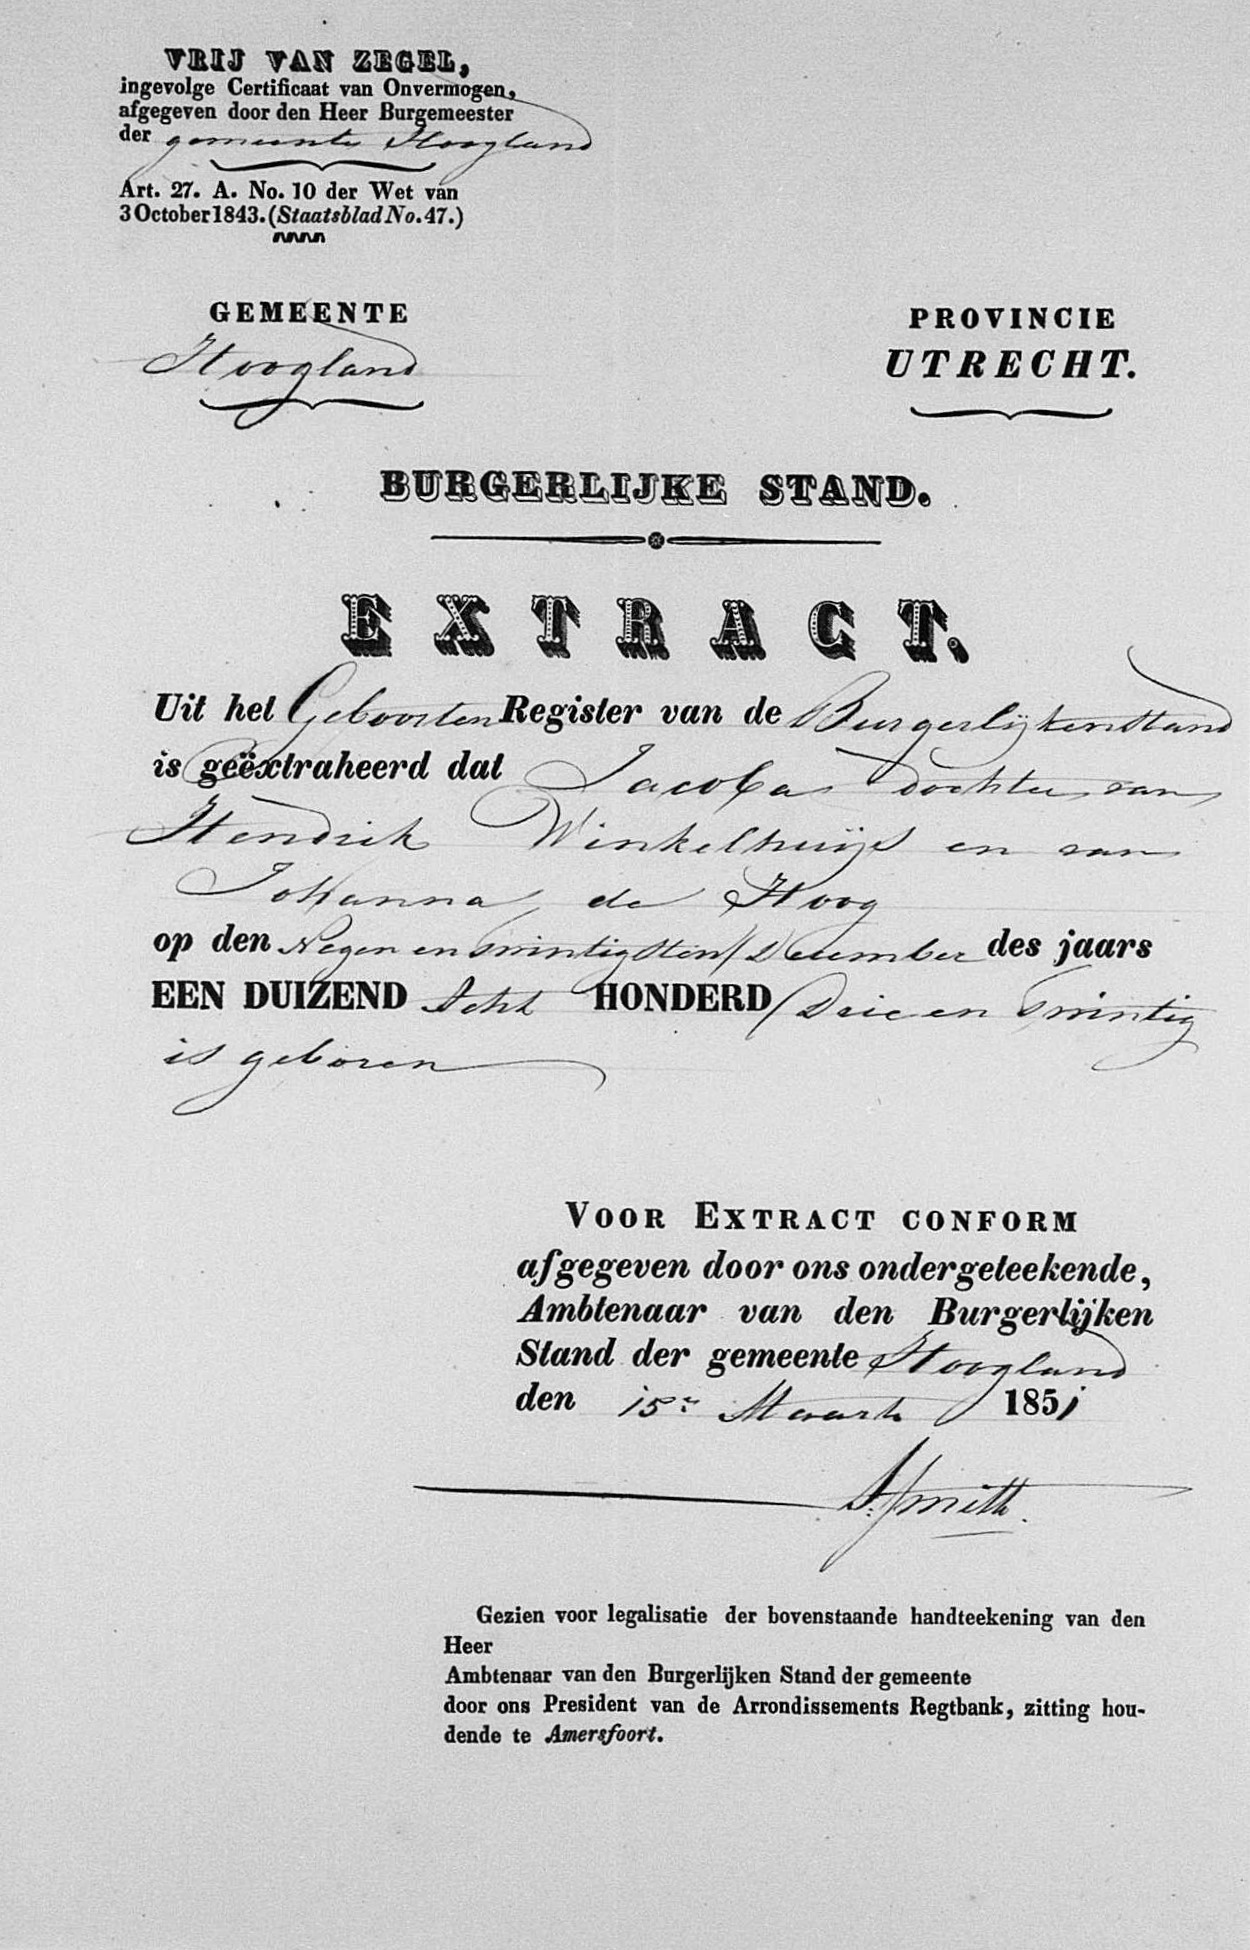 VRIJ VAN ZEGEL,
ingevolge Certificaat van Onvermogen,
afgegeven door den Heer Burgemeester
der gemeente Hoogland
Art. 27. A. No. 10 der Wet van
3 October 1843. (Staatsblad No. 47.)
GEMEENTE
Hoogland
PROVINCIE
UTRECHT.
BURGERLIJKE STAND.
EXTRACT.
Uit het Geboorten Register van de Burgerlijkenstand
is geëxtraheerd dat Jacoba dochter van
Hendrik Winkelhuijs en van
Johanna de Hoog
op den Negen en twintigsten December des jaars
EEN DUIZEND Acht HONDERD Drie en twintig
is geboren
VOOR EXTRACT CONFORM
afgegeven door ons ondergeteekende,
Ambtenaar van den Burgerlijken
Stand der gemeente Hoogland
den 15n Maart 1851
S. Smith.
Gezien voor legalisatie der bovenstaande handteekening van den
Heer
Ambtenaar van den Burgerlijken Stand der gemeente
door ons President van de Arrondissements Regtbank, zitting hou-
dende te Amersfoort.